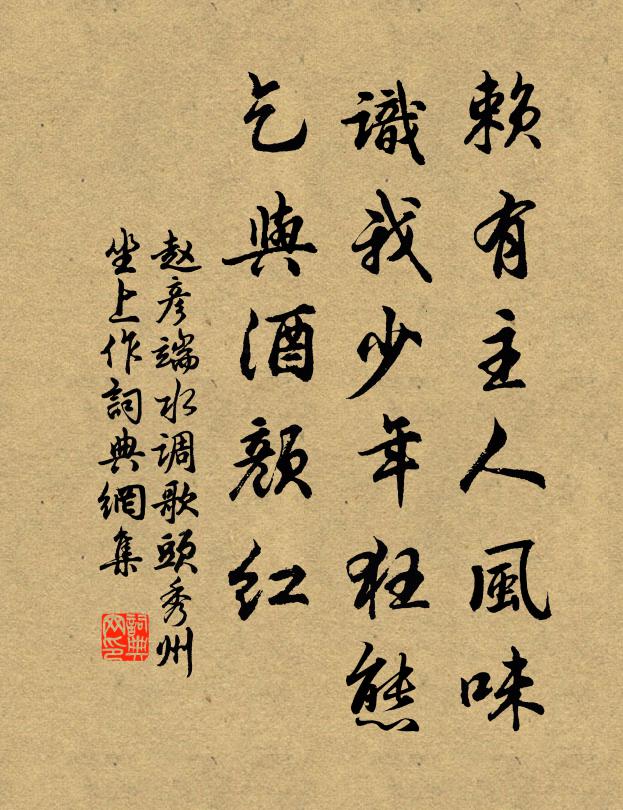 赖有主人風味
識我少年狂態
乞與酒顏紅
赵彥端水调歌頭秀州
坐上作詞典網集
詞典网印